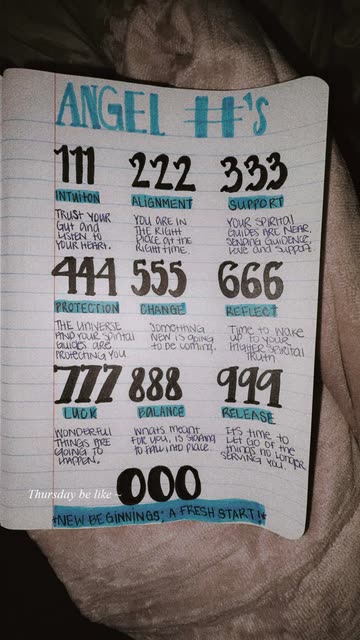 ANGEL #'S
111
INTUITON
TRUST YOUR
GUT and
LISTEN TO
YOUR HEART.
222
ALIGNMENT
YOU ARE IN
THE RIGHT
PLACE at the
RIGHT TIME.
333
SUPPORT
YOUR SPIRITAL
GUIDES ARE NEAR,
SENDING GUIDENCE,
LOVE and SUPPORT.
444
PROTECTION
THE UNIVERSE
AND YOUR SPIRITAL
GUIDES are
PROTECTING YOU
555
CHANGE
SOMETHING
NEW IS GOING
to be coming.
666
REFLECT
TIME TO WAKE
UP to YOUR
HIGHER SPIRITAL
TRUTH
777
LUCK
WONDERFUL
THINGS ARE
GOING TO
HAPPEN.
888
BALANCE
WHATS MEANT
FOR YOU, IS
TO FALL INTO PLACE.
999
RELEASE
IT'S time to
LET GO OF the
things NO LONGER
SERVING YOU.
000
Thursday be like ~
*NEW BEGINNINGS; A FRESH START!*